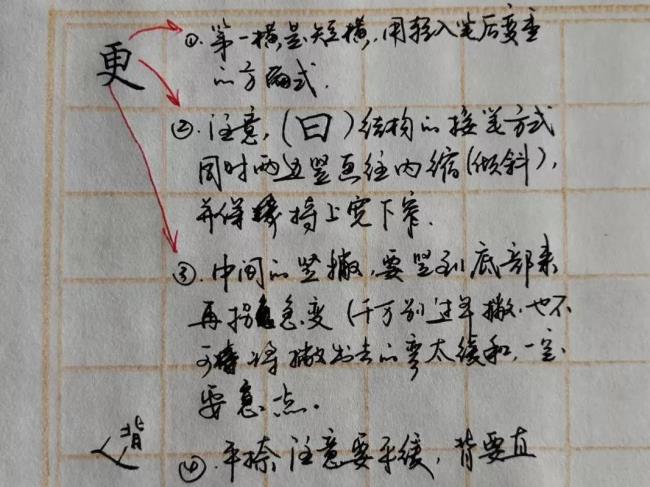 更
①. 第一横是短横，用轻入笔后变重
的方式.
②. 注意，(曰) 结构的接笔方式
同时两边竖画往内缩(倾斜),
并保持上宽下窄.
③. 中间的竖撇，要竖到底部来
再拐急变 (千万别过早撇.也不
可将撇出去的弯太缓和，一定
要急点。
背
④. 平捺注意要平缓，背要直